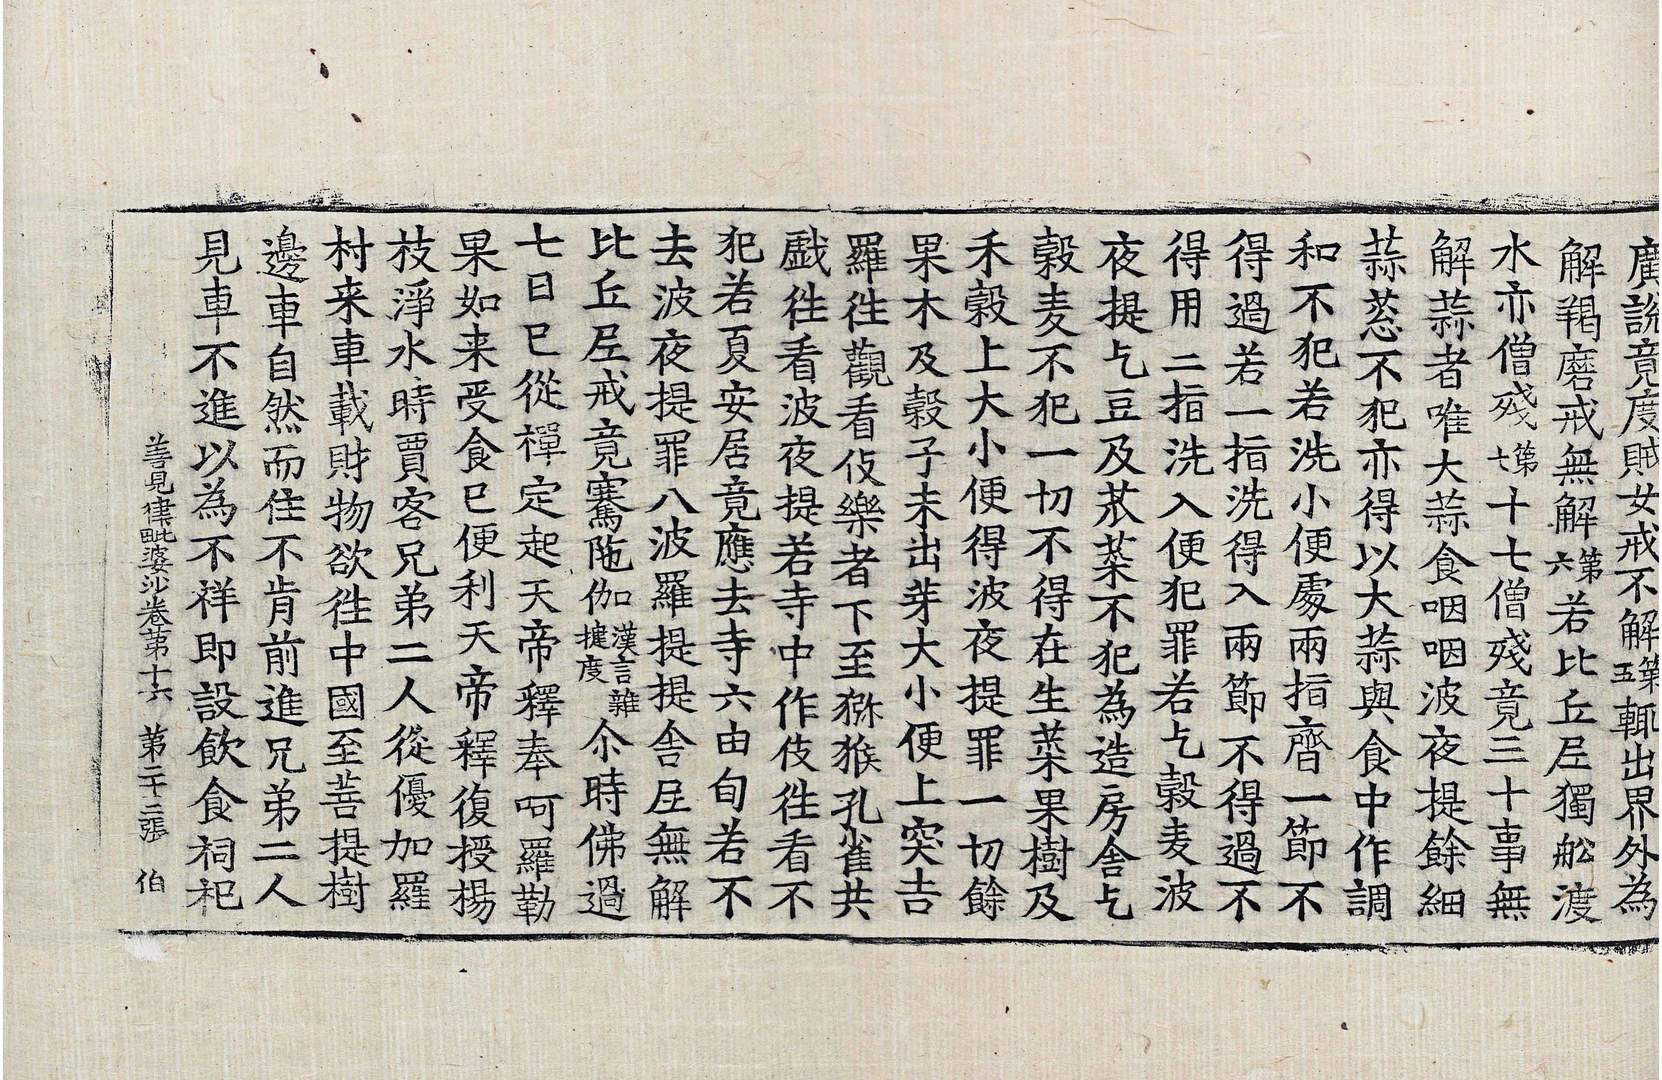 廣説竟度賊女戒不解第五輒出界外為
解羯磨戒無解第六若比丘𡰱獨舩渡
水亦僧殘第七十七僧殘竟三十事無
解蒜者唯大蒜食咽咽波夜提餘細
蒜葱不犯亦得以大蒜與食中作調
和不犯若洗小便處兩指齊一節不
得過若一指洗得入兩節不得過不
得用二指洗入便犯罪若乞糓麦波
夜提乞豆及菜不犯為造房舎乞
糓麦不犯一切不得在生菜果樹及
禾糓上大小便得波夜提罪一切餘
果木及糓子未出芽大小便上突吉
羅徃觀看伎樂者下至猕猴孔雀共
戯徃看波夜提若寺中作伎徃看不
犯若夏安居竟應去寺六由旬若不
去波夜提罪八波羅提提舎𡰱無解
比丘𡰱戒竟騫陁伽漢言雜揵度尒時佛過
七日已從禪定起天帝釋奉呵羅勒
果如来受食已便利天帝釋復授楊
枝淨水時賈客兄弟二人從優加羅
村来車載財物欲徃中國至菩提樹
邊車自然而住不肯前進兄弟二人
見車不進以為不祥即設飲食祠祀
善見律毗婆沙卷第十六 第二十二張 伯